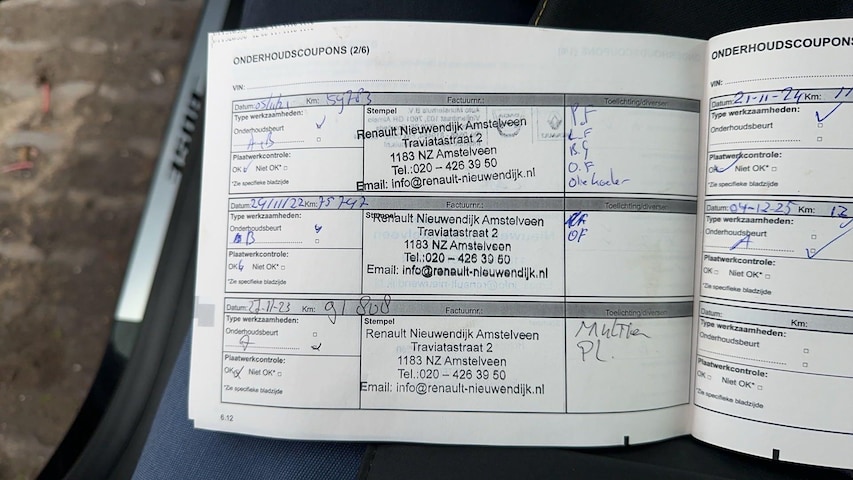 ONDERHOUDSCOUPONS (2/6)
VIN:
Datum: Km: 59783 Factuurnr.: Toelichting/diversen
Type werkzaamheden:
Onderhoudsbeurt
A+B
Plaatwerkcontrole:
OK Niet OK*
*Zie specifieke bladzijde
Stempel
Renault Nieuwendijk Amstelveen
Traviatastraat 2
1183 NZ Amstelveen
Tel.:020 – 426 39 50
Email: info@renault-nieuwendijk.nl
P.F
L.F
B.G
O.F
Oliekoeler
Datum: 24/11/22 Km: 75747 Factuurnr.: Toelichting/diversen
Type werkzaamheden:
Onderhoudsbeurt
B
Plaatwerkcontrole:
OK Niet OK*
*Zie specifieke bladzijde
Stempel
Renault Nieuwendijk Amstelveen
Traviatastraat 2
1183 NZ Amstelveen
Tel.:020 – 426 39 50
Email: info@renault-nieuwendijk.nl
OF
Datum: 22-11-23 Km: 91808 Factuurnr.: Toelichting/diversen
Type werkzaamheden:
Onderhoudsbeurt
A
Plaatwerkcontrole:
OK Niet OK*
*Zie specifieke bladzijde
Stempel
Renault Nieuwendijk Amstelveen
Traviatastraat 2
1183 NZ Amstelveen
Tel.:020 – 426 39 50
Email: info@renault-nieuwendijk.nl
PL.
6.12
ONDERHOUDSCOUPONS
VIN:
Datum: 21-11-24 Km: 11
Type werkzaamheden:
Onderhoudsbeurt
Plaatwerkcontrole:
OK Niet OK*
*Zie specifieke bladzijde
Datum: 04-12-25 Km: 12
Type werkzaamheden:
Onderhoudsbeurt
A
Plaatwerkcontrole:
OK Niet OK*
*Zie specifieke bladzijde
Datum: Km:
Type werkzaamheden:
Onderhoudsbeurt
Plaatwerkcontrole:
OK Niet OK*
*Zie specifieke bladzijde